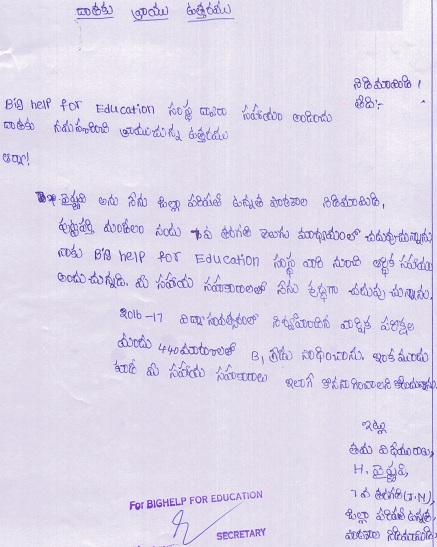 దాతకు వ్రాయు ఉత్తరము
నిడిమామిడి,
తేది:-
Big help for Education సంస్థ ద్వారా సహాయం అందించు
దాతకు నమస్కరించి వ్రాయుచున్న ఉత్తరము
ఆర్యా!
వైష్ణవి అను నేను జిల్లా పరిషత్ ఉన్నత పాఠశాల నిడిమామిడి,
పుట్టపర్తి మండలం నందు 7వ తరగతి తెలుగు మాధ్యమంలో చదువుచున్నాను
నాకు Big help for Education సంస్థ వారి నుంచి ఆర్థిక సహాయం
అందుచున్నది. మీ సహాయ సహకారాలతో నేను శ్రద్ధగా చదువు చున్నాను.
2016-17 విద్యా సంవత్సరంలో నిర్వహించిన వార్షిక పరీక్షల
యందు 440 మార్కులతో B1 గ్రేడు సాధించాను. ఇంక ముందు
కూడా మీ సహాయ సహకారాలు ఇలాగే కొనసాగించాలని కోరుచున్నాను.
ఇట్లు
తమ విధేయురాలు,
H. వైష్ణవి,
7వ తరగతి (T.M),
జిల్లా పరిషత్ ఉన్నత
పాఠశాల నిడిమామిడి
For BIGHELP FOR EDUCATION
SECRETARY